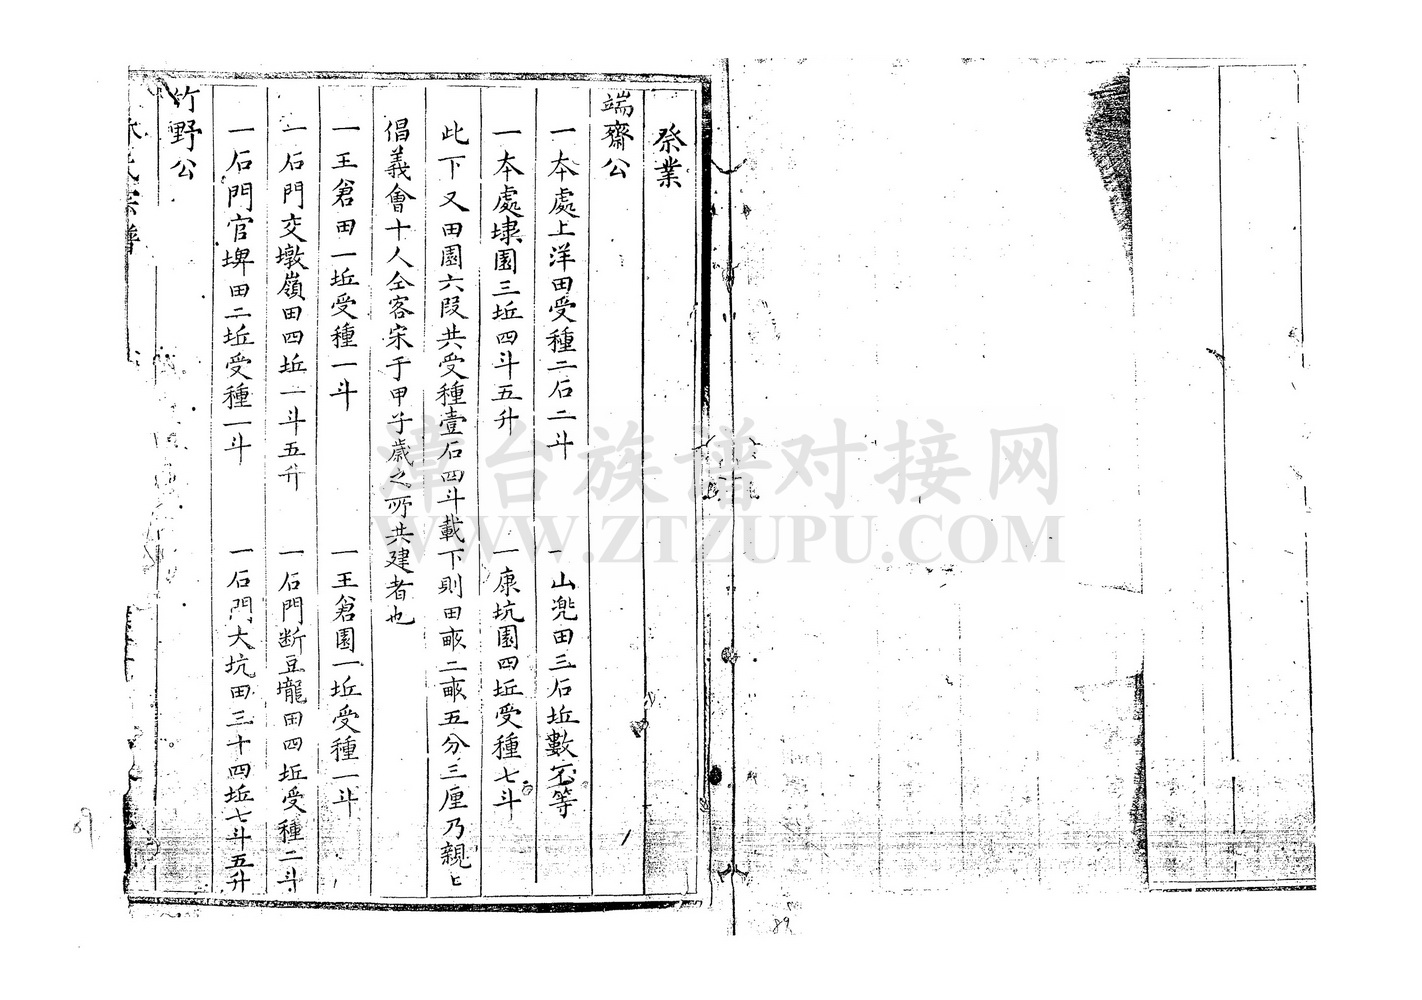 祭業
端齋公
一本處上洋田受種二石二斗　一山兠田三石坵數不等
一本處埭園三坵四斗五升　一康坑園四坵受種七斗
此下又田園六段共受種壹石四斗載下則田畝二畝五分三厘乃親上
倡義會十人仝客宋于甲子歲之所共建者也
一王倉田一坵受種一斗　一王倉園一坵受種一斗
一石門交墩嶺田四坵一斗五升　一石門断豆壠田四坵受種二斗
一石門官埤田二坵受種一斗　一石門大坑田三十四坵七斗五升
竹野公
氏宗譜
89
89
津台族谱对接网
WWW.ZTZUPU.COM